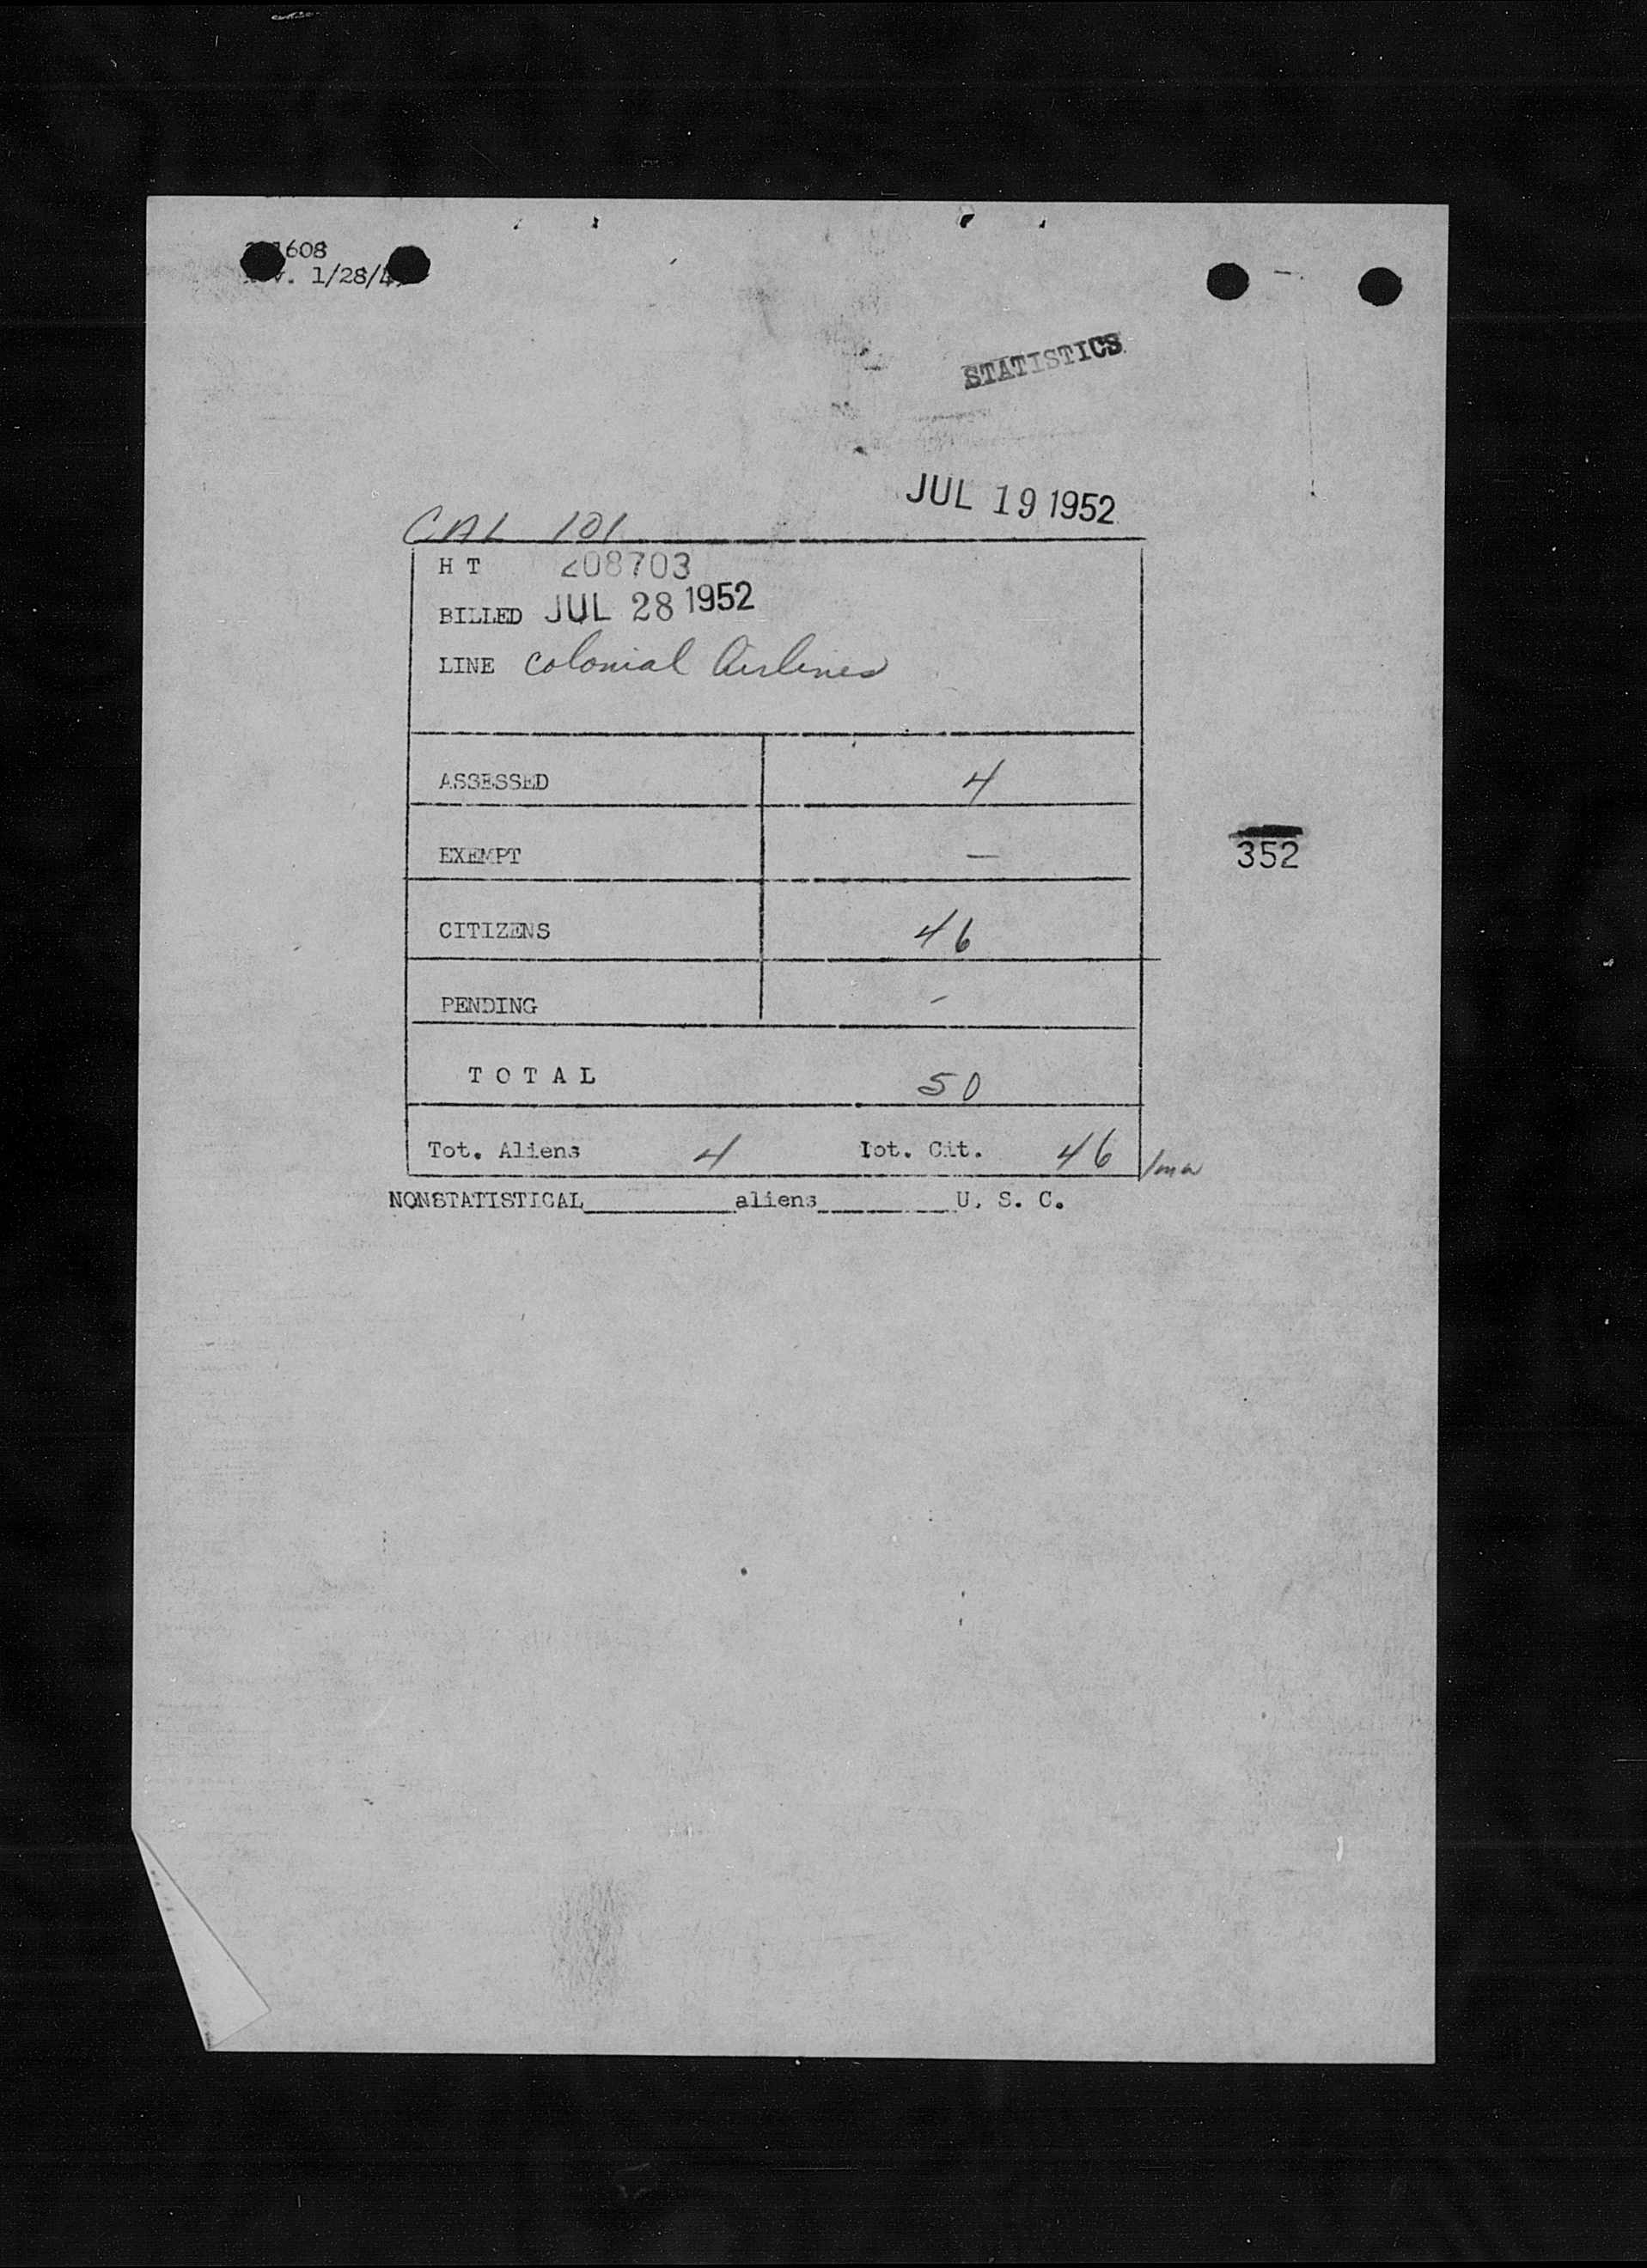 608
1/28/
STATISTICS
JUL 19 1952
CAL 101
H T 208703
BILLED JUL 28 1952
LINE Colonial Airlines
ASSESSED 4
EXEMPT —
352
CITIZENS 46
PENDING -
T O T A L 50
Tot. Aliens 4 Tot. Cit. 46
NONSTATISTICAL__________aliens__________U. S. C.